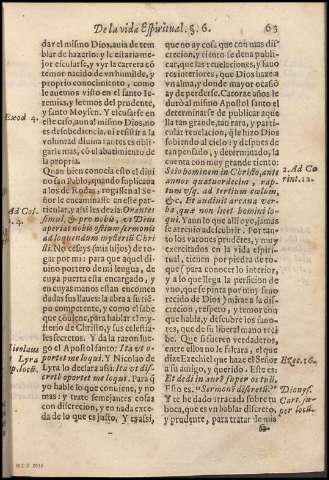 De la vida Espiritual. §. 6. 63
dar el mismo Dios, auia de tem
blar de hazerlo: y le estaria me-
jor escusarse, y
temor nacido de vn humilde, y
proprio conocimiento, como
le auemos visto en el santo Ie-
remias, y leemos del prudente,
y santo Moysen. Y escusarse en
este caso, aun al mismo Dios, no
es desobediencia, ni resistir a la
voluntad diuina
garle mas, có el abatimiento de
la propria.
Exod 4.
Quan bien conocia esto el diui
no san Pablo, quando suplicaua
a los de
le encaminasse en este par-
ticular, y assi les dezia: Orantes
simul, & pro nobis, vt Deus
aperiat nobis ostium sermonis
ad loquendum mysterium Chri
sti. No ceseys (mis hijos) de ro-
gar por mi: para que aquel diui-
no portero de mi lengua, de
cuya puerta està encargado, y
en cuyas manos estan encomen
dadas sus llaues: la abra a su tié
po competente, y como el sabe
que cóuiene, para hablar el my-
sterio de Christo, y sus celestia-
les secretos. Y da la razon lue-
go el Apostol santo: Ita vt o-
portet me loqui. Y Nicolao de
Lyra lo declara assi: Ita vt di-
scretè oportet me loqui. Para q̃
yo hable lo que conuiene, y no
mas: y trate semejantes cosas
con discrecion, y en nada exce-
da de lo que es justo. Y es assi,
Ad Col.
4.
Nicolaus
Lyra
que no ay cosa que con mas dis-
crecion, y tiento se deua publi-
car, que las reuelaciones, y hauo
res interiores, que Dios haze a
vn alma, y donde mayor ocasió
ay de perderse. Catorze años le
duró al mismo Apostol santo el
determinarse de publicar aquel
lla tan grande, tan rara, y parti-
cular reuelacion, q̃ le hizo Dios
subiendo al cielo: y despues de
tan pensado, y determinado, la
cuenta con muy grande tiento:
Scio hominem in Christo, ante
annos quatuordecim, rap-
tum vsq. ad tertium cœlum,
&c. Et audiuit arcana ver-
ba, quæ non licet homini lo-
qui. Y aun lo que alli oyo, jamas
se atreuio a descubrir. Por tan-
to los varones prudétes, y muy
exercitados en la vida espiri-
tual, tienen por mejor lo de
que (para conocer lo interior,
y a lo que llega la perficion de
vno, que se pinta por muy senci
do de amores de Dios) mirar a la dis-
crecion, respeto, y temor con
que habla, y descubre los fauo-
res, que de su liberal mano reci
be. Que si fueren verdaderos,
entre ellos no le faltara, el que
dize Ezechiel que haze el Señor
a su amigo, y querido. Este es:
Et dedi in aure super os tuũ.
Esto es. "Sermonē discretũ." Y
te he dado arracada sobre tu
boca, que es vn hablar discreto,
y prudente, para tratar de mis
2. Ad Co
rint. 12.
Ezec. 16.
Dionys.
Cart. su-
per hoc li.